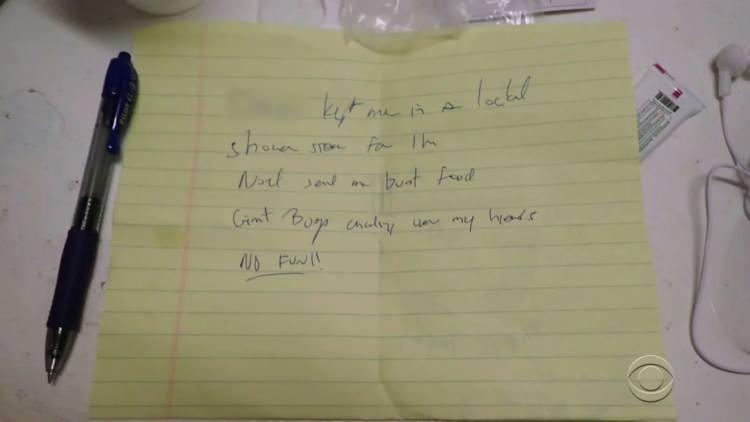 kept me in a locked
shower stall for 1hr
Noel sent me burnt food
Giant Bugs crawling over my hands
NO FUN!!